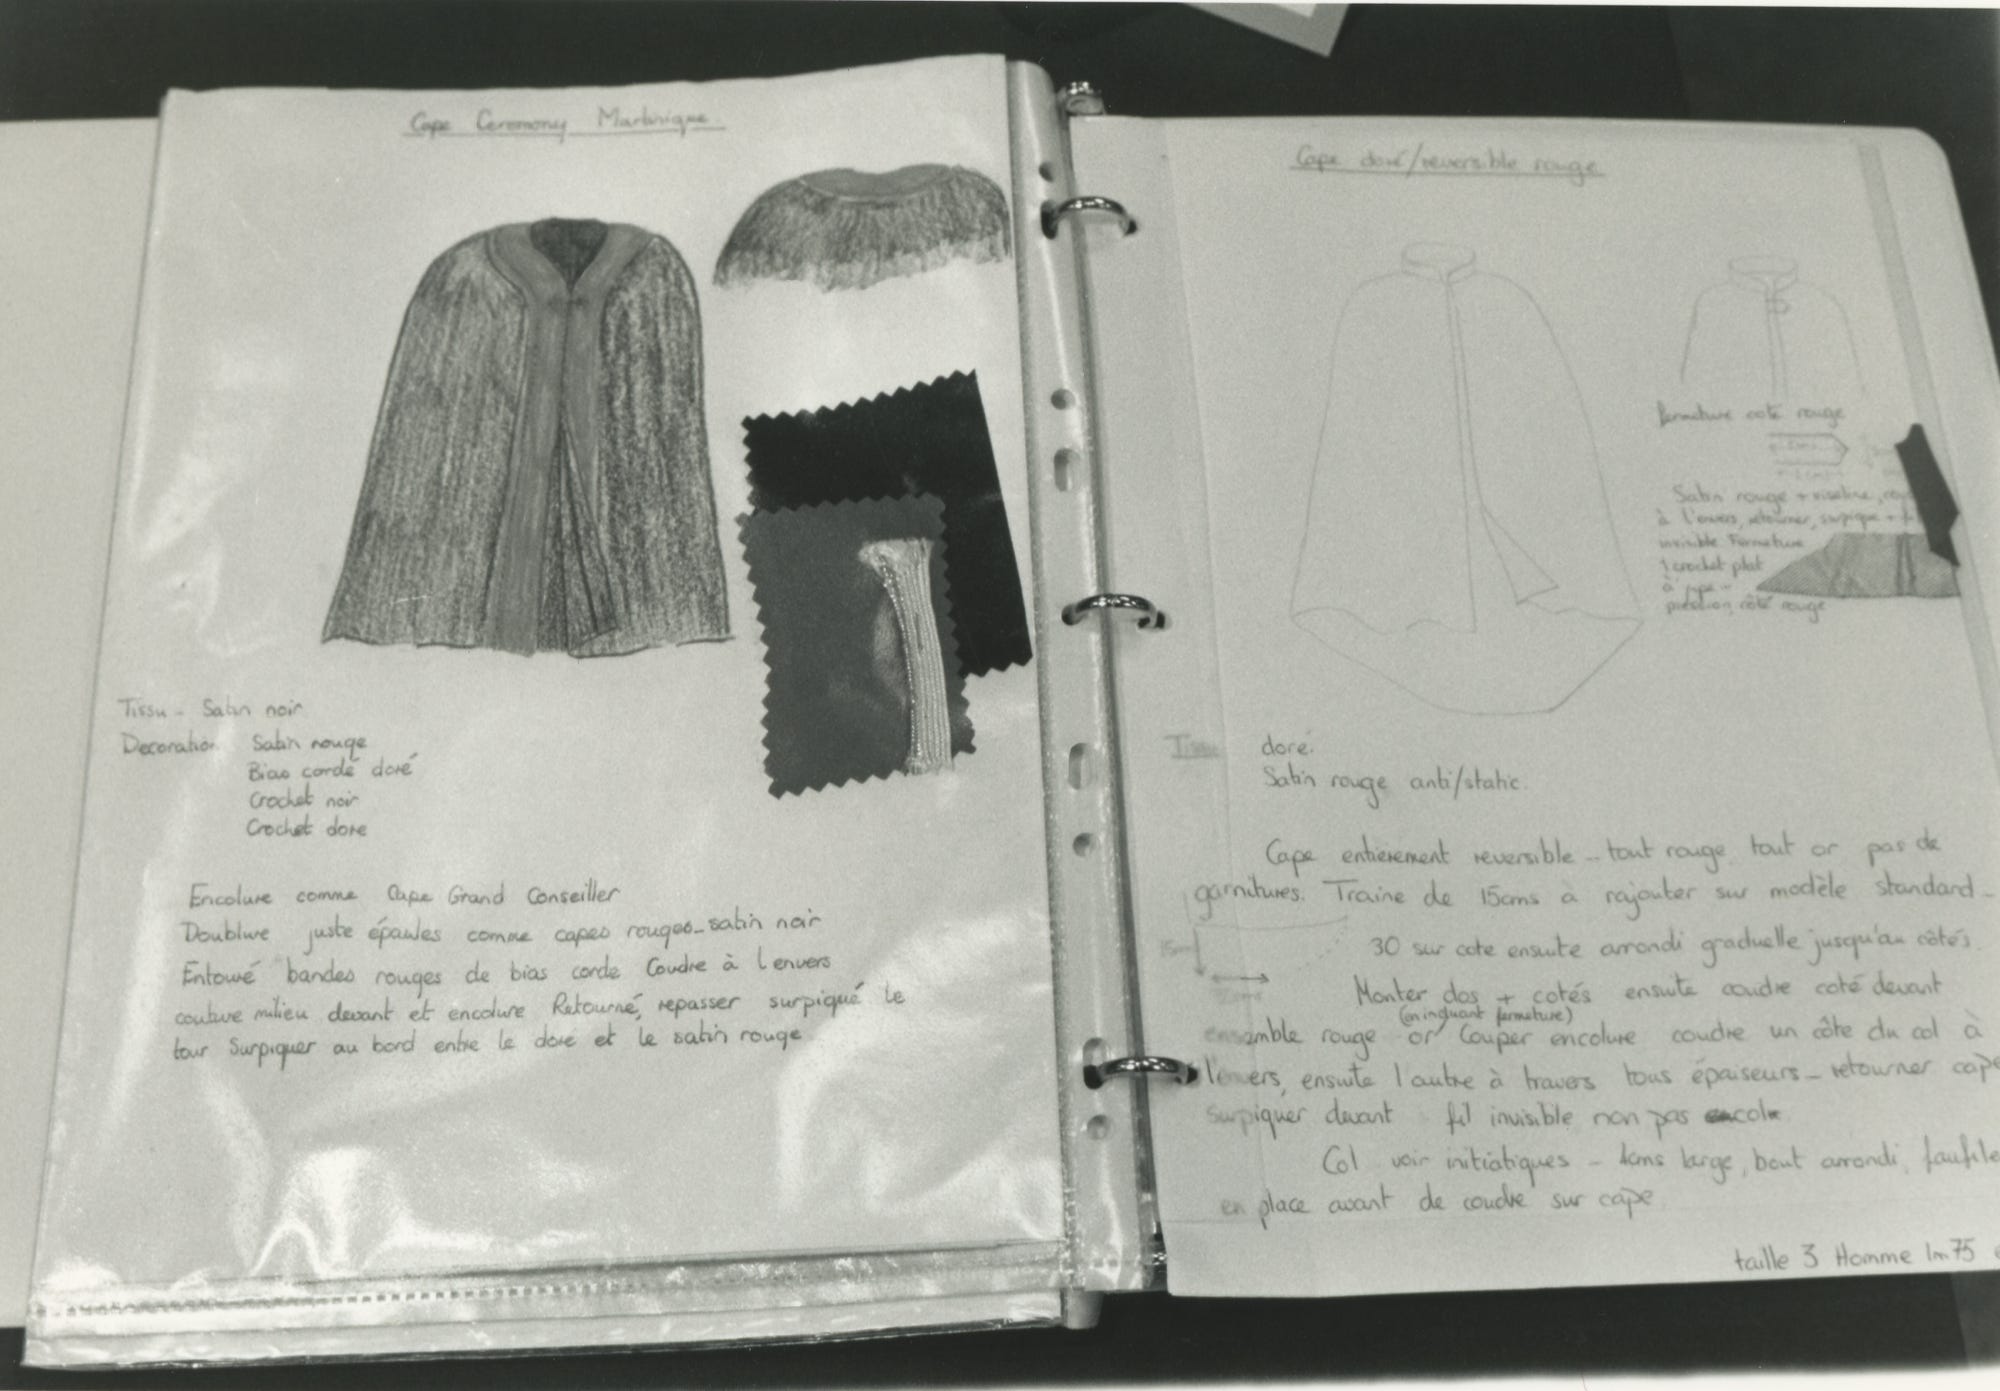 Cape Ceremony Martinique.
Tissu - Satin noir
Decoration Satin rouge
Biao cordé doré
Crochet noir
Crochet dore
Encolure comme Cape Grand Conseiller
Doublure juste épaules comme capes rouges - satin noir
Entouré bandes rouges de bias corde Coudre à l envers
couture milieu devant et encolure Retourné, repasser surpiqué le
tour Surpiquer au bord entre le dore et le satin rouge
Cape doré/reversible rouge
fermeture coté rouge
Satin rouge + viseline,
à l'envers, retourner, surpique +
invisible Fermeture
1 crochet plat
à
pression, côté rouge
Tissu doré.
Satin rouge anti/static.
Cape entièrement reversible - tout rouge tout or pas de
garnitures. Traine de 15cms à rajouter sur modèle standard -
15cm
30 sur cote ensuite arrondi graduelle jusqu'au côtés.
Monter dos + cotés ensuite coudre coté devant
(en incluant fermeture)
ensemble rouge or Couper encolure coudre un côte du col à
l'envers, ensuite l autre à travers tous épaiseurs - retourner cape
Surpiquer devant fil invisible non pas
Col voir initiatiques - 4cms large, bout arrondi, faufile
en place avant de coudre sur cape
taille 3 Homme 1m75